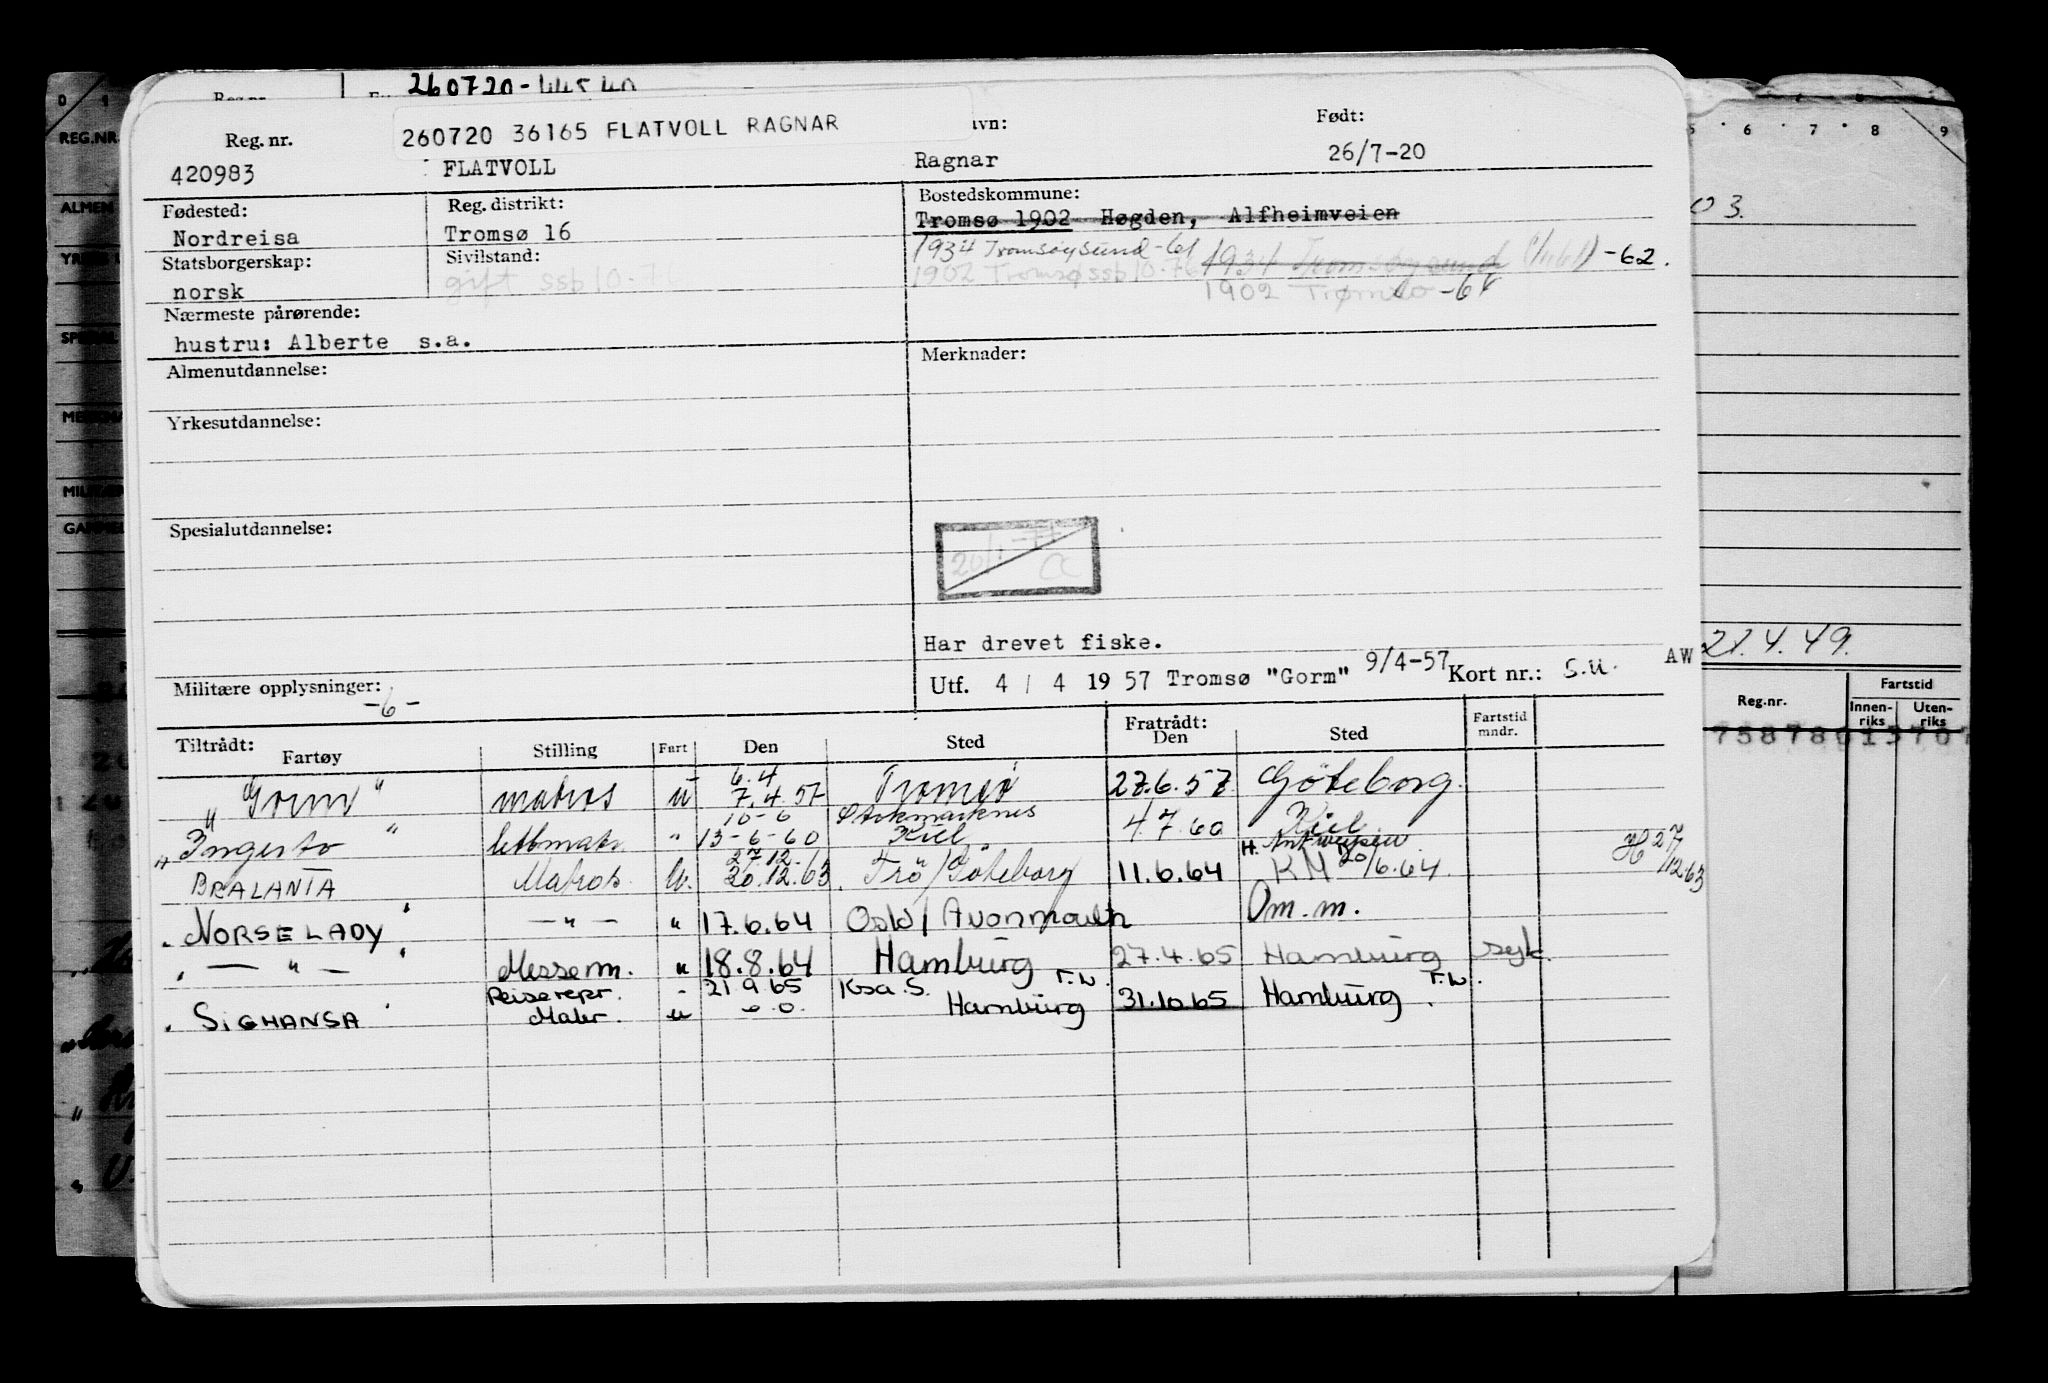 260720-44540
260720 36165 FLATVOLL RAGNAR
Reg. nr. 420983
FLATVOLL
Ragnar
Født: 26/7-20
Fødested: Nordreisa
Reg. distrikt: Tromsø 16
Bostedskommune: Tromsø 1902 Høgden, Alfheimveien
1934 Tromsøysund -61 1934 Tromsøysund -62.
1902 Tromsø ssb 10-76 1902 Tromsø -64
Statsborgerskap: norsk
Sivilstand: gift ssb 10-76
Nærmeste pårørende:
hustru: Alberte s.a.
Almenutdannelse:
Merknader:
Yrkesutdannelse:
Spesialutdannelse:
Har drevet fiske.
Militære opplysninger: -6-
Utf. 4 / 4 19 57 Tromsø "Gorm" 9/4-57 Kort nr.: s.u. AW
Tiltrådt: Fartøy Stilling Fart Den Sted Fratrådt: Den Sted Fartstid mndr.
"Gorm" matros u 6.4 7.4.57 Tromsø 27.6.57 Göteborg.
"Ingerto" lettmatr. " 10-6 13-6-60 Kiel 4.7.60 Kiel
BRALANTA Matros U. 27.12. 20.12.63. Trö/Göteborg 11.6.64 H. Antwerpen KM 20/6.64. H 27/12.63
"NORSE LADY" — " — " 17.6.64 Oslo/Avonmouth Om.m.
" — " — " Messem. " 18.8.64 Hamburg 27.4.65 Hamburg syk.
"SIGHANSA" Reiserepr. Matr. " u 21.9.65 Ksa.S. Hamburg T.W. 31.10.65 Hamburg T.W.
REG.NR.
5 6 7 8 9
03.
21.4.49.
Reg.nr. Fartstid
Innenriks Utenriks